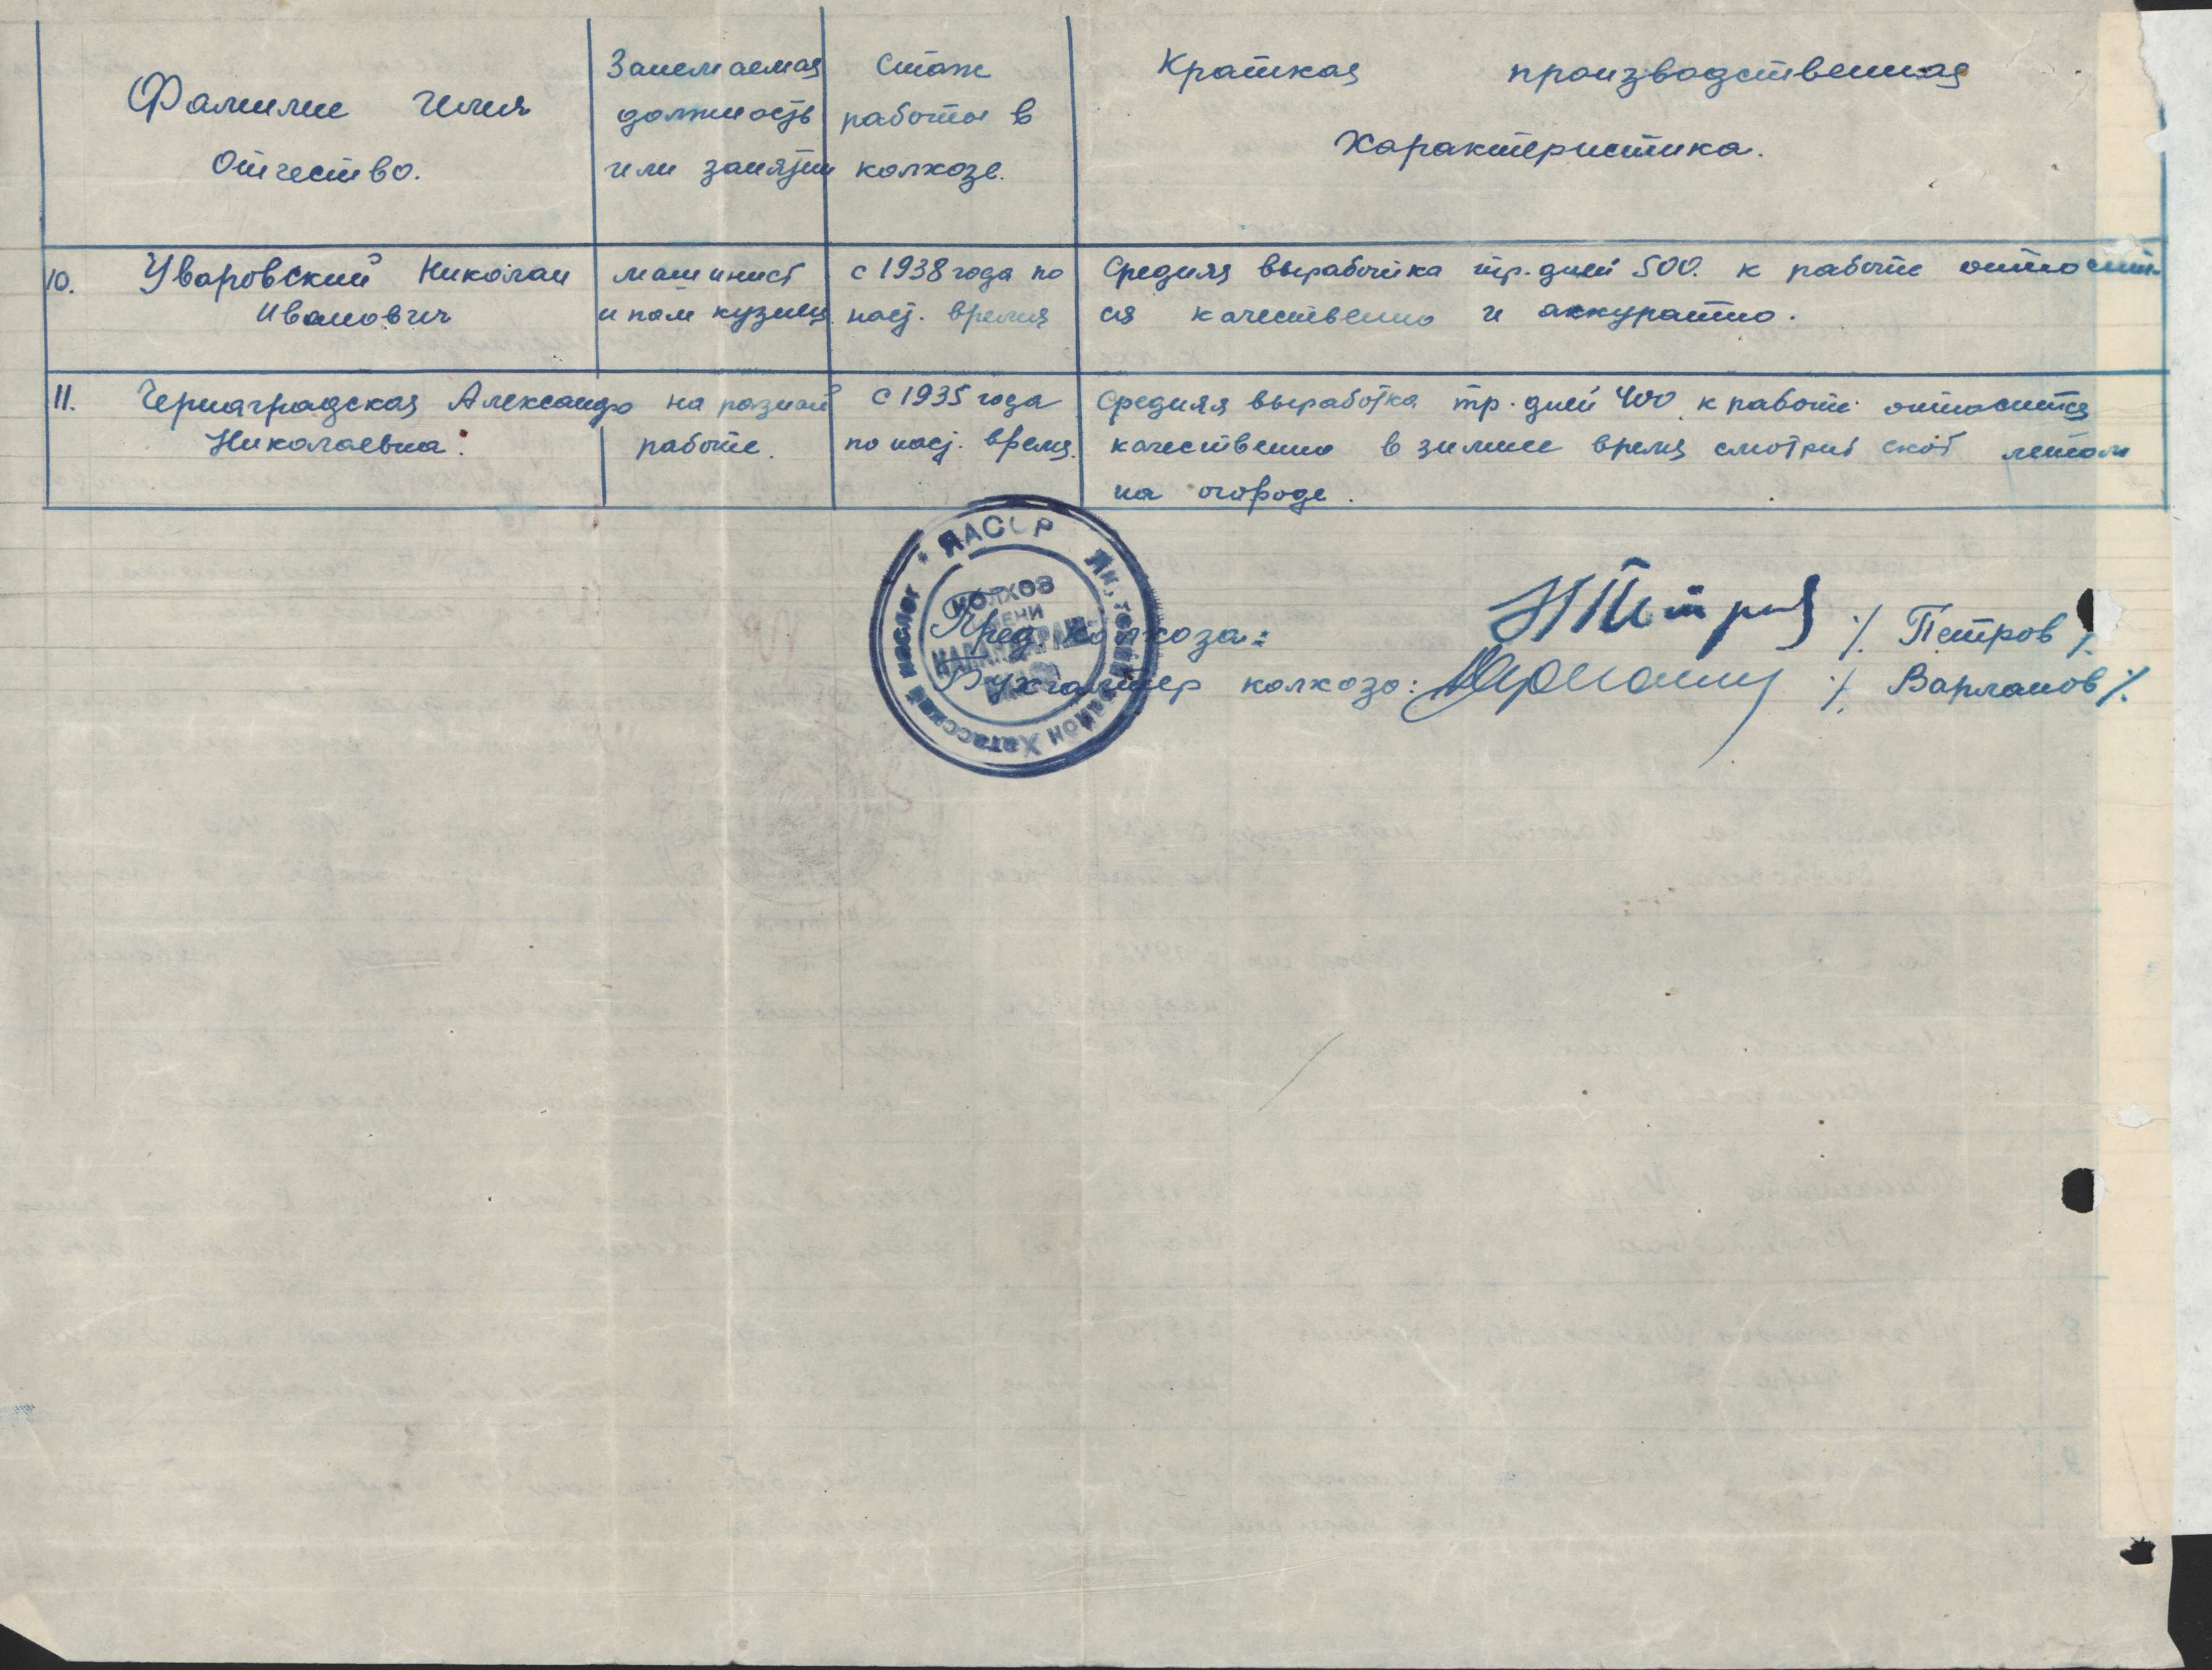 Фамилие Имя
Отчество.
Занемаемая
должность
или занятии
Стаж
работы в
колхозе.
Краткая производственная
Характеристика.
10. Уваровский Николаи
Иванович
машинист
и пом кузнеца
с 1938 года по
наст. время
Средняя выработка тр. дней 500. к работе относит-
ся качественно и аккуратно.
11. Черноградская Александра
Николаевна.
на разной
работе.
с 1935 года
по наст. время.
Средняя выработка тр. дней 400 к работе относится
качественно в зимнее время смотрит скот летом
на огороде.
ЯАССР
район Хатасский наслег
КОЛХОЗ
ИМЕНИ
Пред. колхоза: / Петров /.
Бухгалтер колхоза: / Варламов /.